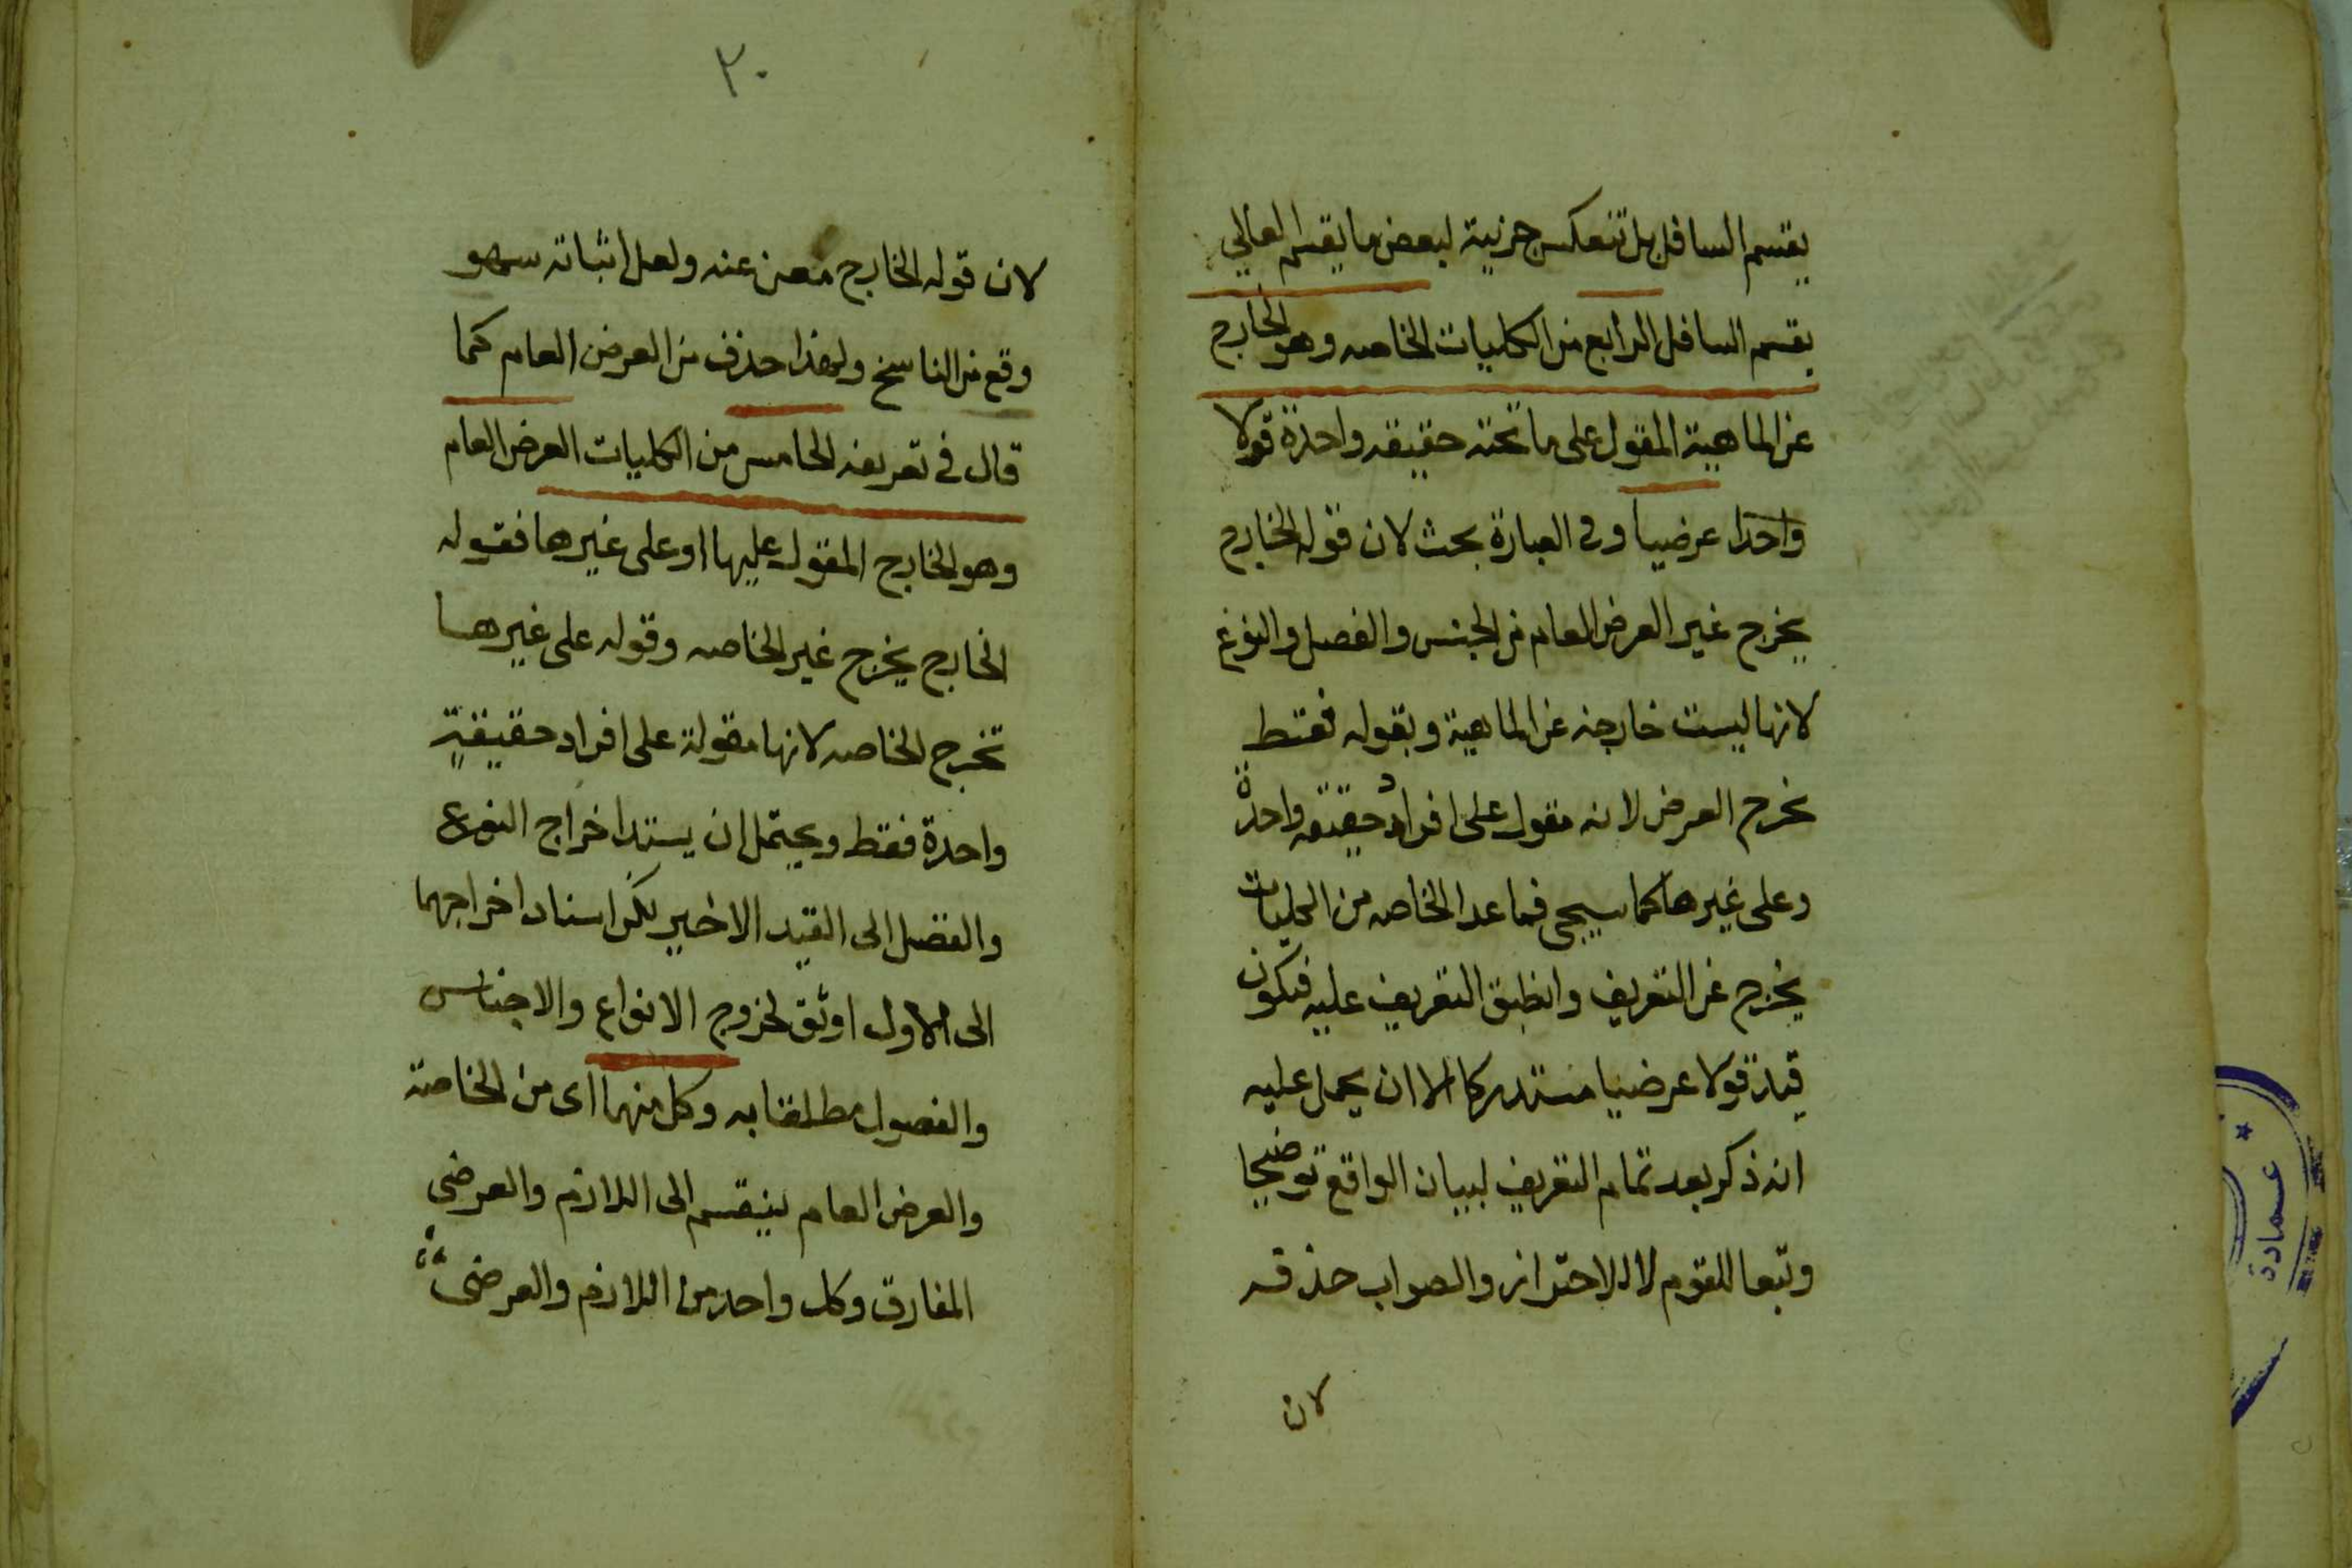 يقسم السافل بل تنعكس جزئية لبعض ما يقسم العالي
يقسم السافل الرابع من الكليات الخاصه وهو الخارج
عن الماهية المقول على ما تحته حقيقه واحدة قولا
واحدا عرضيا وفي العبارة بحث لان قوله الخارج
يخرج غير العرض العام من الجنس والفصل والنوع
لانها ليست خارجه عن الماهية وبقوله فقط
يخرج العرض لانه مقول على افراد حقيقه واحدة
وعلى غيرها كما سيجي فما عدا الخاصه من الكليات
يخرج عن التعريف وانطبق التعريف عليه فيكون
قيد قولا عرضيا مستدركا الا ان يحمل عليه
انه ذكر بعد تمام التعريف لبيان الواقع توضيحا
وتبعا للقوم لا للاحتراز والصواب حذفه
لان
٣٠
لان قوله الخارج مغن عنه ولعل اثباته سهو
وقع من الناسخ ولهذا حذف من العرض العام كما
قال في تعريفه الخامس من الكليات العرض العام
وهو الخارج المقول عليها او على غيرها فقوله
الخارج يخرج غير الخاصه وقوله على غيرها
تخرج الخاصه لانها مقولة على افراد حقيقة
واحدة فقط ويحتمل ان يسند اخراج النوع
والفصل الى القيد الاخير لكن اسناد اخراجهما
الى الاول اوثق لخروج الانواع والاجناس
والفصول مطلقا به وكل منهما اى من الخاصة
والعرض العام ينقسم الى اللازم والعرضى
المفارق وكل واحد من اللازم والعرضى
عمادة